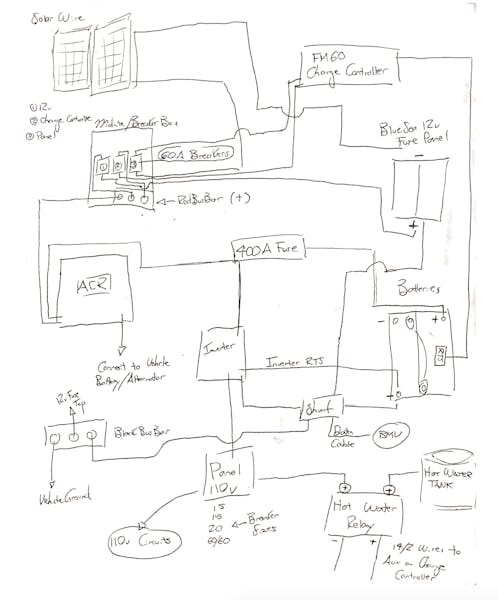 Solar Wire
FM60
Charge Controller
① 12v
② Charge Controller
③ Panel
Midnite/Breaker Box
60A Breakers
Blue Sea 12v
Fuse Panel
-
+
Red Bus Bar (+)
400A Fuse
ACR
Batteries
- +
Connect to Vehicle
Battery/Alternator
Inverter
Inverter RTS
12v Fuse
Shunt
+
Data
Cable
BMV
Black Bus Bar
Vehicle Ground
Panel
110v
15
15
20
60/60
Breaker
Sizes
110v Circuits
+ +
Hot Water
Relay
- +
Hot Water
TANK
14/2 Wires to
Aux on Charge
Controller